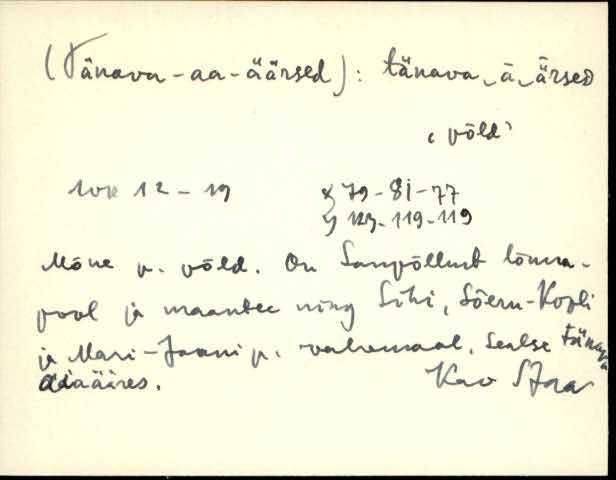 (Tänava-aa-äärsed): tänava‿ä‿ärsed
‹ põld ›
12 - 19 x) 79 - 81 - 77
y) 123 - 119 - 119
Mõne p. põld. On Sanpõllust lõuna-
pool ja maantee ning Sihi, Sõeru-Kopli
ja Mari-Jaani p. vahemaal. Sealse tänava
aiaääres.